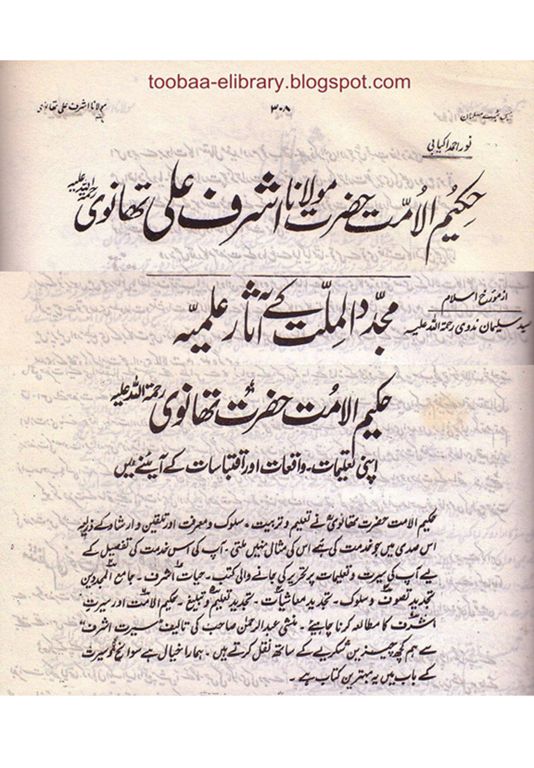 toobaa-elibrary.blogspot.com
بیس بڑے مسلمان ۳۰۸ مولانا اشرف علی تھانوی
حکیم الامت حضرت مولانا اشرف علی تھانوی رحمۃ اللہ علیہ
از مؤرخ اسلام
سید سلیمان ندوی رحمۃ اللہ علیہ
مجدد الملت کے آثار علمیہ
حکیم الامت حضرت تھانوی رحمۃ اللہ علیہ
اپنی تعلیمات۔ واقعات اور اقتباسات کے آئینے میں
حکیم الامت حضرت تھانویؒ نے تعلیم و تربیت۔ سلوک و معرفت اور تلقین و ارشاد کے ذریعہ
اس صدی میں جو خدمت کی ہے اس کی مثال نہیں ملتی۔ آپ کی اس خدمت کی تفصیل کے
لیے آپ کی سیرت و تعلیمات پر تحریر کی جانے والی کتب۔ حیات اشرف۔ جامع المجددین
تجدید تصوف و سلوک۔ تجدید معاشیات۔ تجدید تعلیم و تبلیغ۔ حکیم الامت اور سیرت
اشرف کا مطالعہ کرنا چاہیئے۔ منشی عبدالرحمٰن صاحب کی تالیف "سیرت اشرف"
سے ہم کچھ چیزیں شکریے کے ساتھ نقل کرتے ہیں۔ ہمارا خیال ہے سوانح و سیرت
کے باب میں یہ بہترین کتاب ہے۔